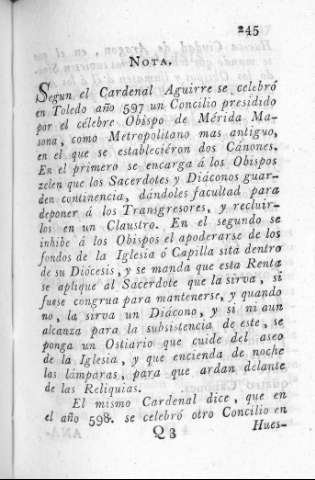 245
NOTA.
Segun el Cardenal Aguirre se celebró
en Toledo año 597 un Concilio presidido
por el célebre Obispo de Mérida Ma-
sona, como Metropolitano mas antiguo,
en el que se establecieron dos Cánones.
En el primero se encarga á los Obispos
zelen que los Sacerdotes y Diáconos guar-
den continencia, dándoles facultad para
deponer á los Transgresores, y recluir-
los en un Claustro. En el segundo se
inhibe á los Obispos el apoderarse de los
fondos de la Iglesia ó Capilla sita dentro
de su Diócesis, y se manda que esta Renta
se aplique al Sacerdote que la sirva, si
fuese congrua para mantenerse, y quando
no, la sirva un Diácono, y si ni aun
alcanza para la subsistencia de este, se
ponga un Ostiario que cuide del aseo
de la Iglesia, y que encienda de noche
las lámparas, para que ardan delante
de las Reliquias.
El mismo Cardenal dice, que en
el año 598. se celebró otro Concilio en
Q 3
Hues-